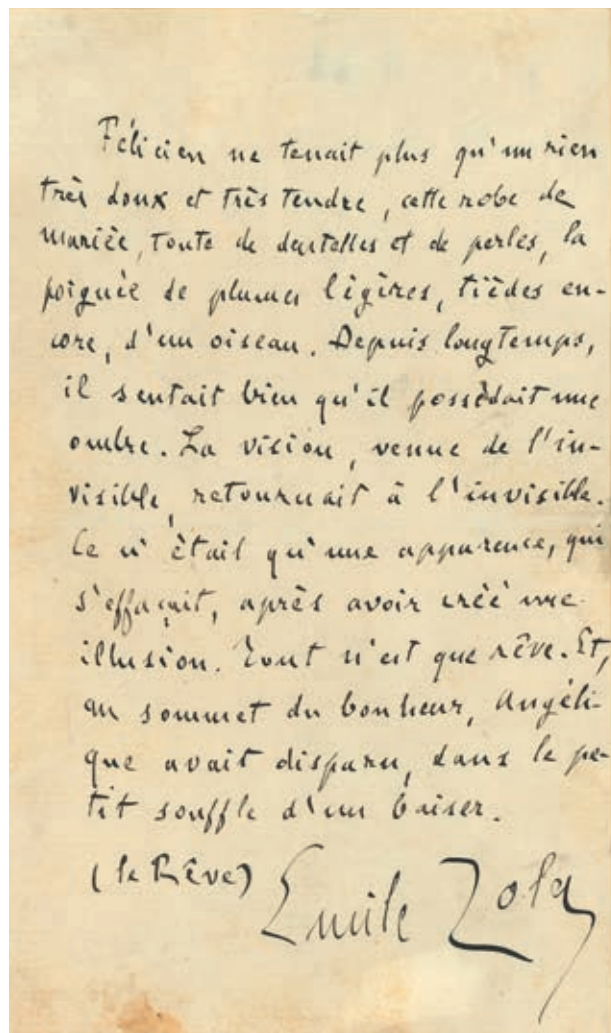 Félicien ne tenait plus qu'un rien
très doux et très tendre, cette robe de
mariée, toute de dentelles et de perles, la
poignée de plumes légères, tièdes en-
core, d'un oiseau. Depuis longtemps,
il sentait bien qu'il possédait une
ombre. La vision, venue de l'in-
visible, retournait à l'invisible.
Ce n'était qu'une apparence, qui
s'effaçait, après avoir créé une
illusion. Tout n'est que rêve. Et,
au sommet du bonheur, Angéli-
que avait disparu, dans le pe-
tit souffle d'un baiser.
(le Rêve)
Emile Zola